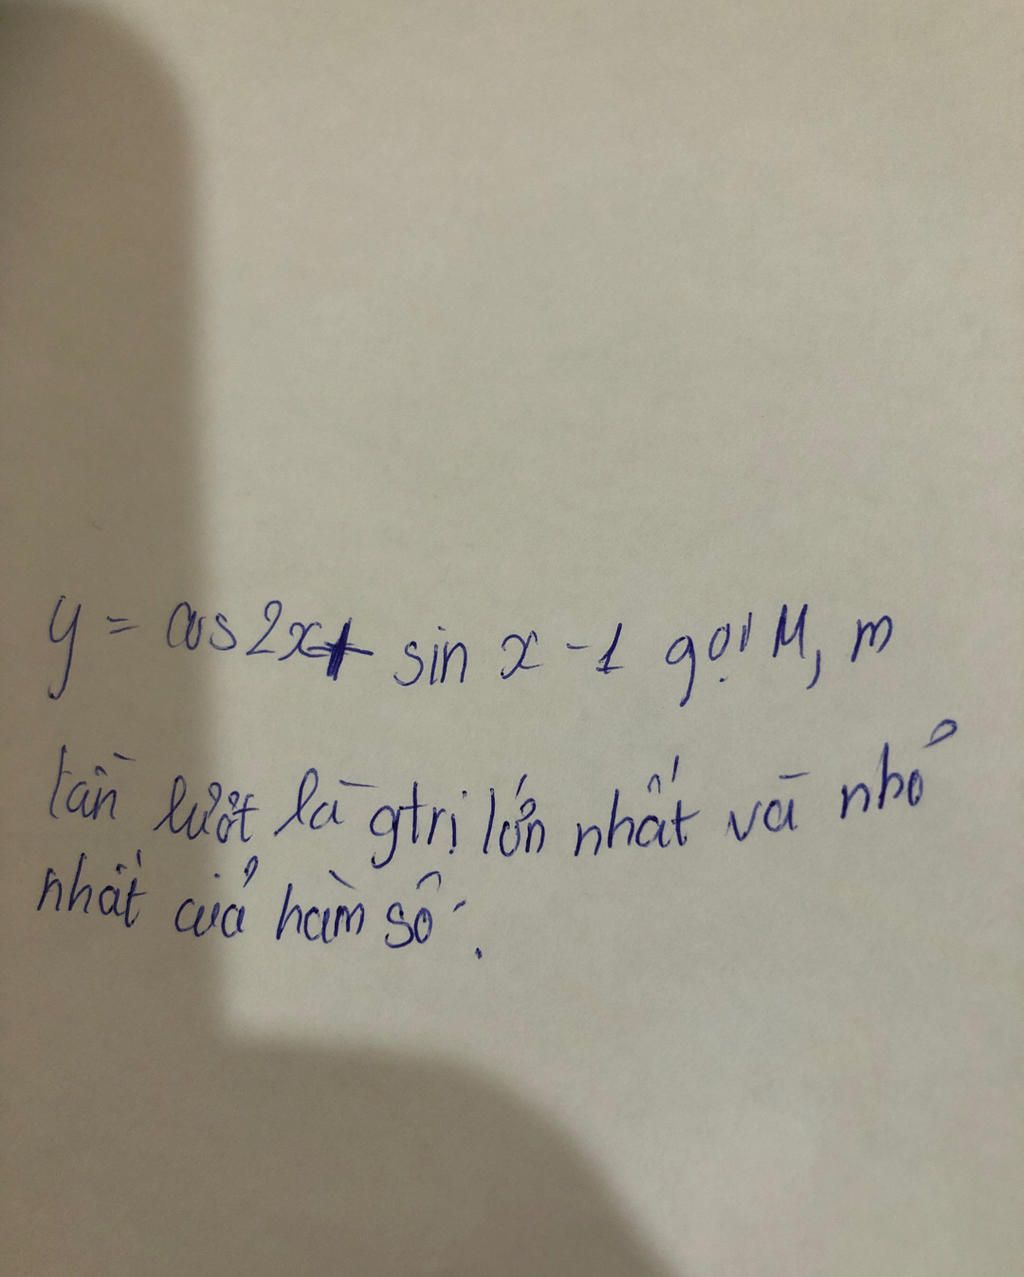 y = cos2x + sin x - 1 gọi M, m
lần lượt là gtrị lớn nhất và nhỏ
nhất của hàm số.